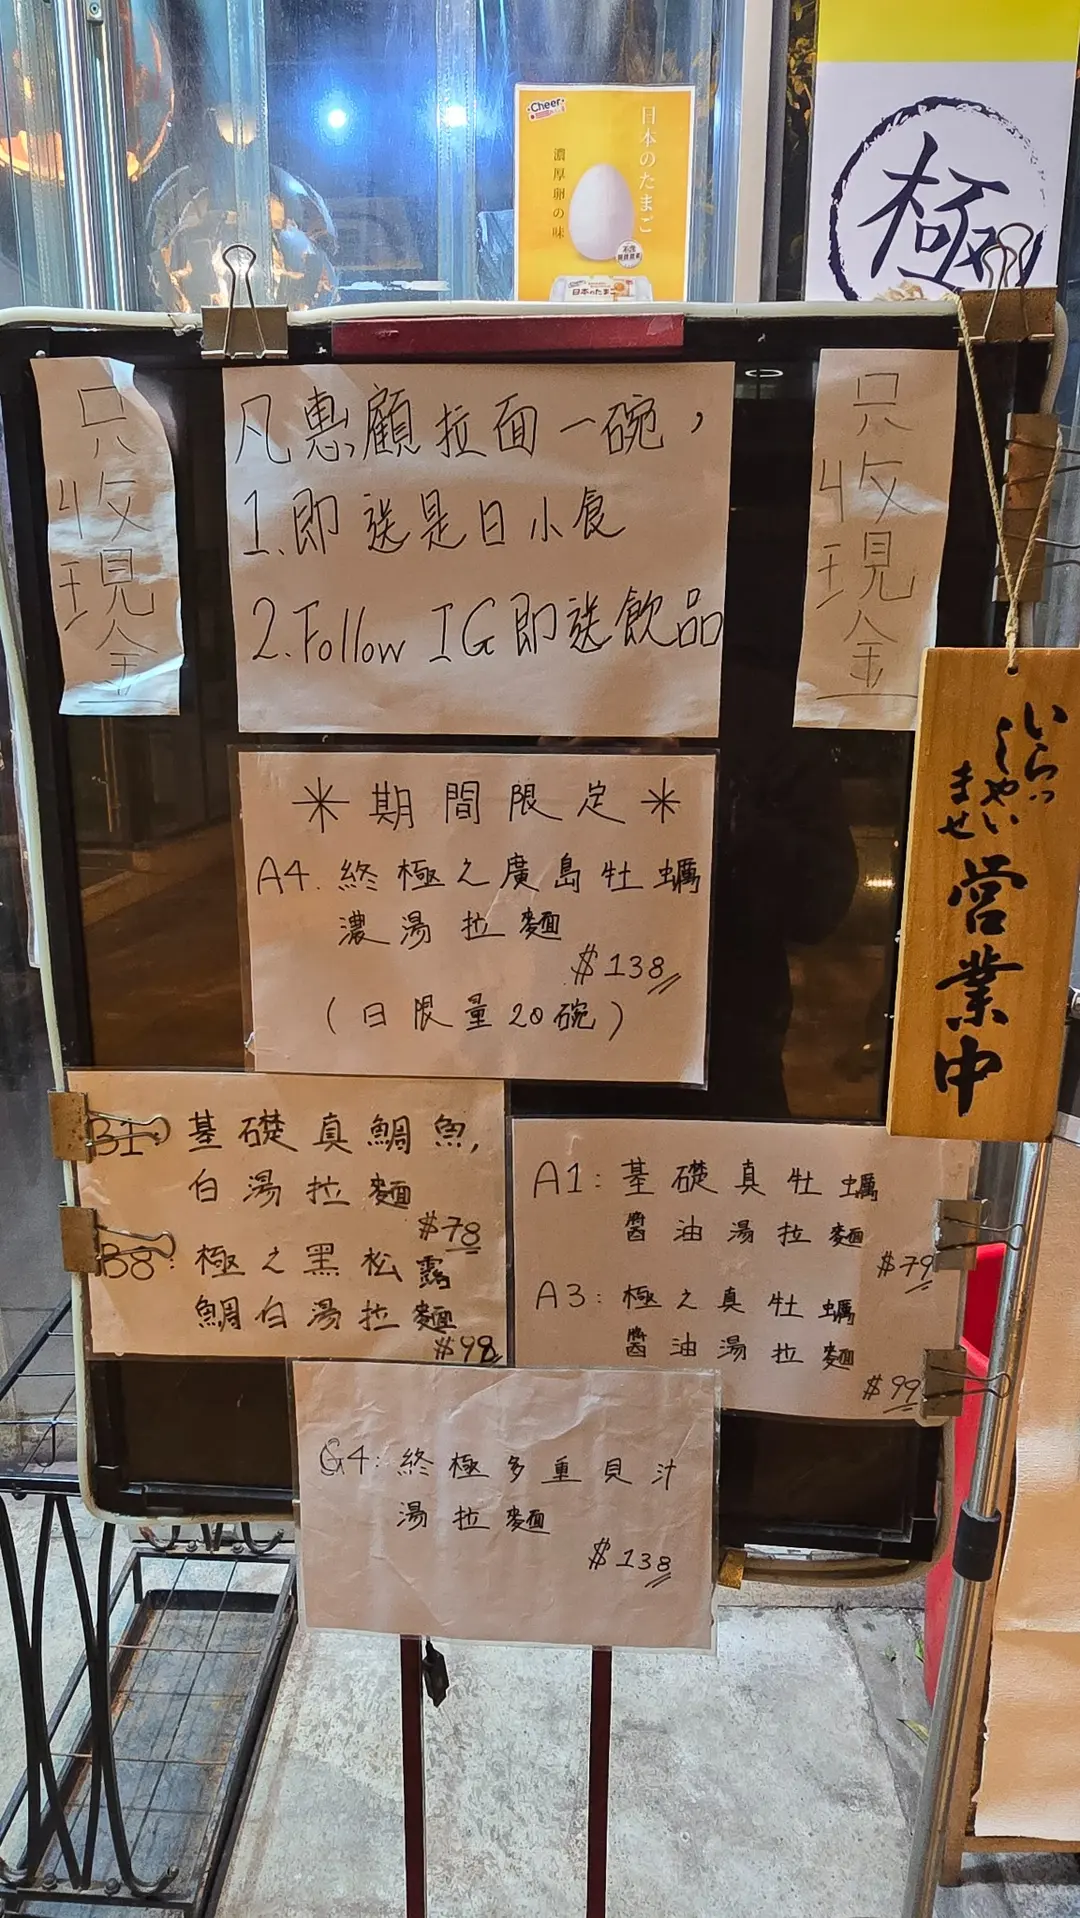 Cheer
日本のたまご
濃厚卵の味
日本のたまご
極
只收現金
凡惠顧拉面一碗，
1.即送是日小食
2.Follow IG即送飲品
只收現金
いらっしゃいませ
営業中
＊期間限定＊
A4.終極之廣島牡蠣
濃湯拉麵
$138
(日限量20碗)
B1:基礎真鯛魚,
白湯拉麵
$78
B8:極之黑松露
鯛白湯拉麵
$98
A1:基礎真牡蠣
醬油湯拉麵
$79
A3:極之真牡蠣
醬油湯拉麵
$99
G4:終極多重貝汁
湯拉麵
$138